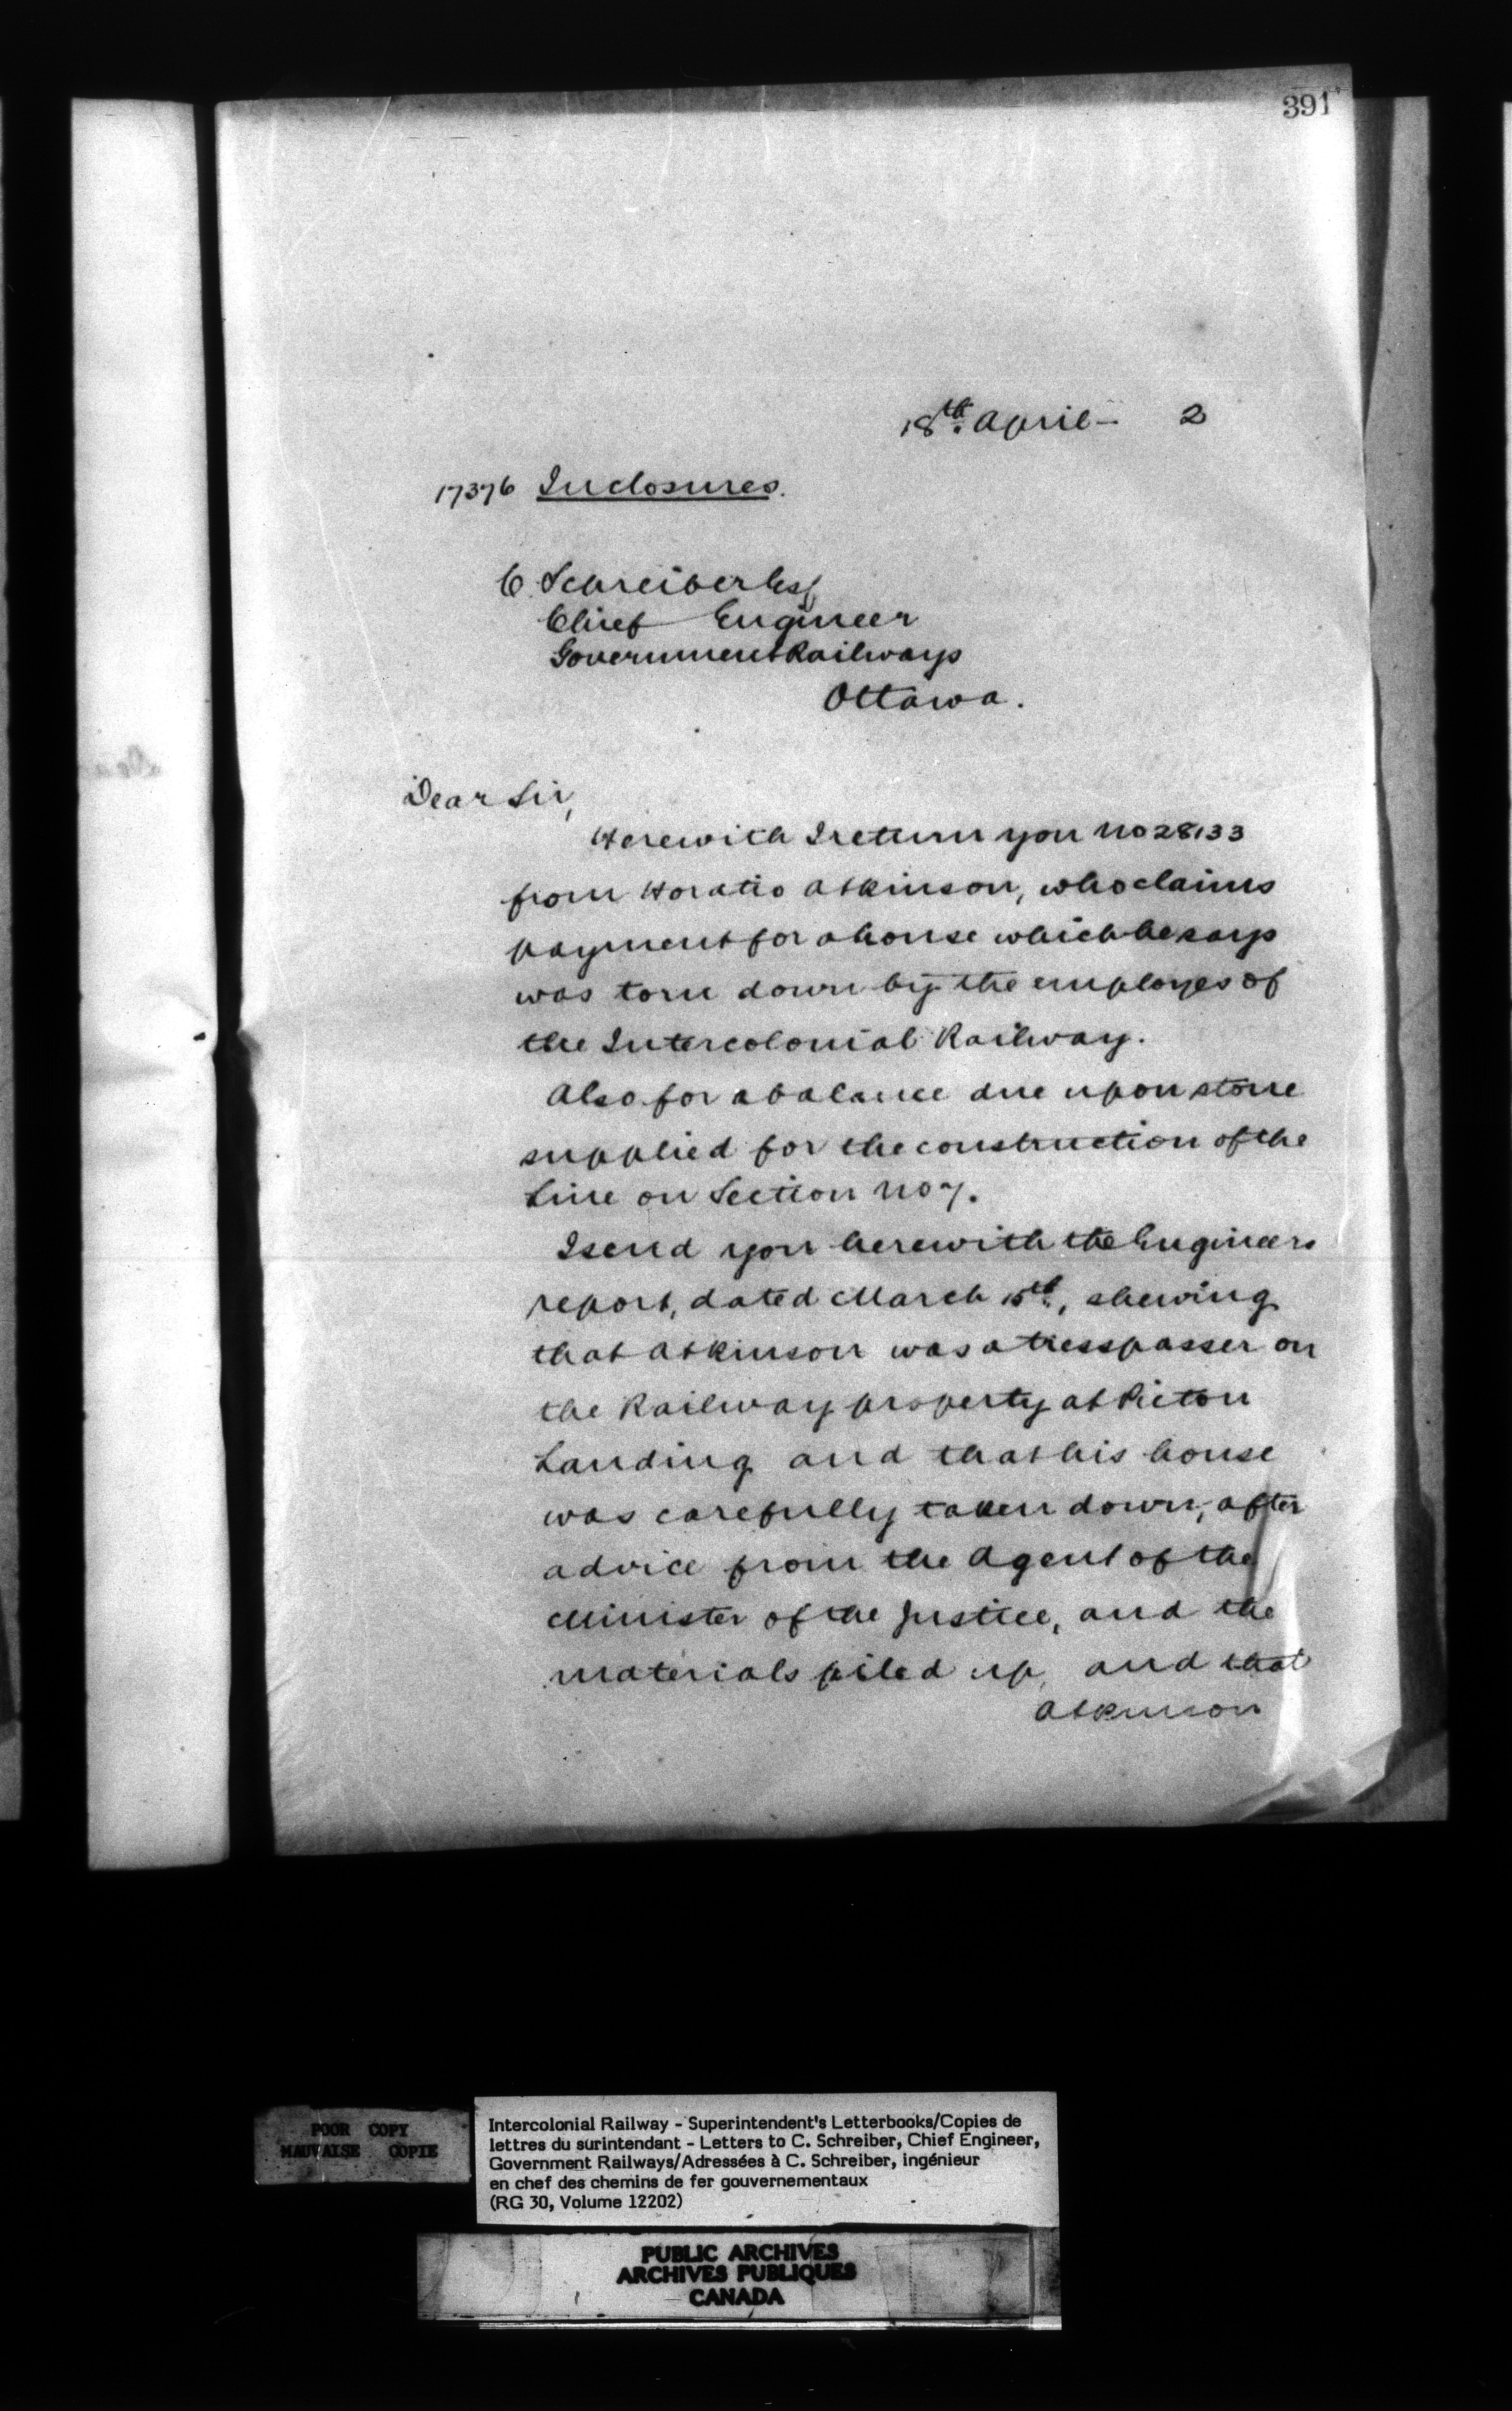 391
18th. April - 2
17376 Inclosures.
C. Schreiber Esq
Chief Engineer
Government Railways
Ottawa.
Dear Sir,
Herewith I return you No 28133
from Horatio Atkinson, who claims
payment for a house which he says
was torn down by the employes of
the Intercolonial Railway.
Also for a balance due upon stone
supplied for the construction of the
Line on Section No 7.
I send you herewith the Engineers
report, dated March 15th, shewing
that Atkinson was a tresspasser on
the Railway property at Pictou
Landing and that his house
was carefully taken down, after
advice from the Agent of the
Minister of the Justice, and the
materials piled up, and that
Atkinson
POOR COPY
MAUVAISE COPIE
Intercolonial Railway - Superintendent's Letterbooks/Copies de
lettres du surintendant - Letters to C. Schreiber, Chief Engineer,
Government Railways/Adressées à C. Schreiber, ingénieur
en chef des chemins de fer gouvernementaux
(RG 30, Volume 12202)
PUBLIC ARCHIVES
ARCHIVES PUBLIQUES
CANADA